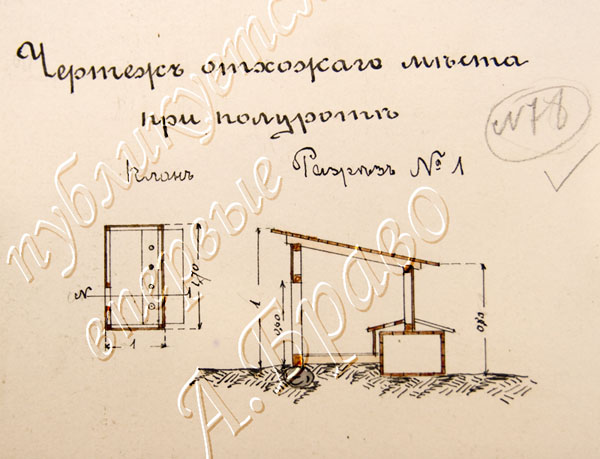 Чертежъ отхожаго мѣста
при полуротѣ
№78
Планъ
Разрѣзъ № 1
N
1
1
1
публикуется
впервые
А. Браво